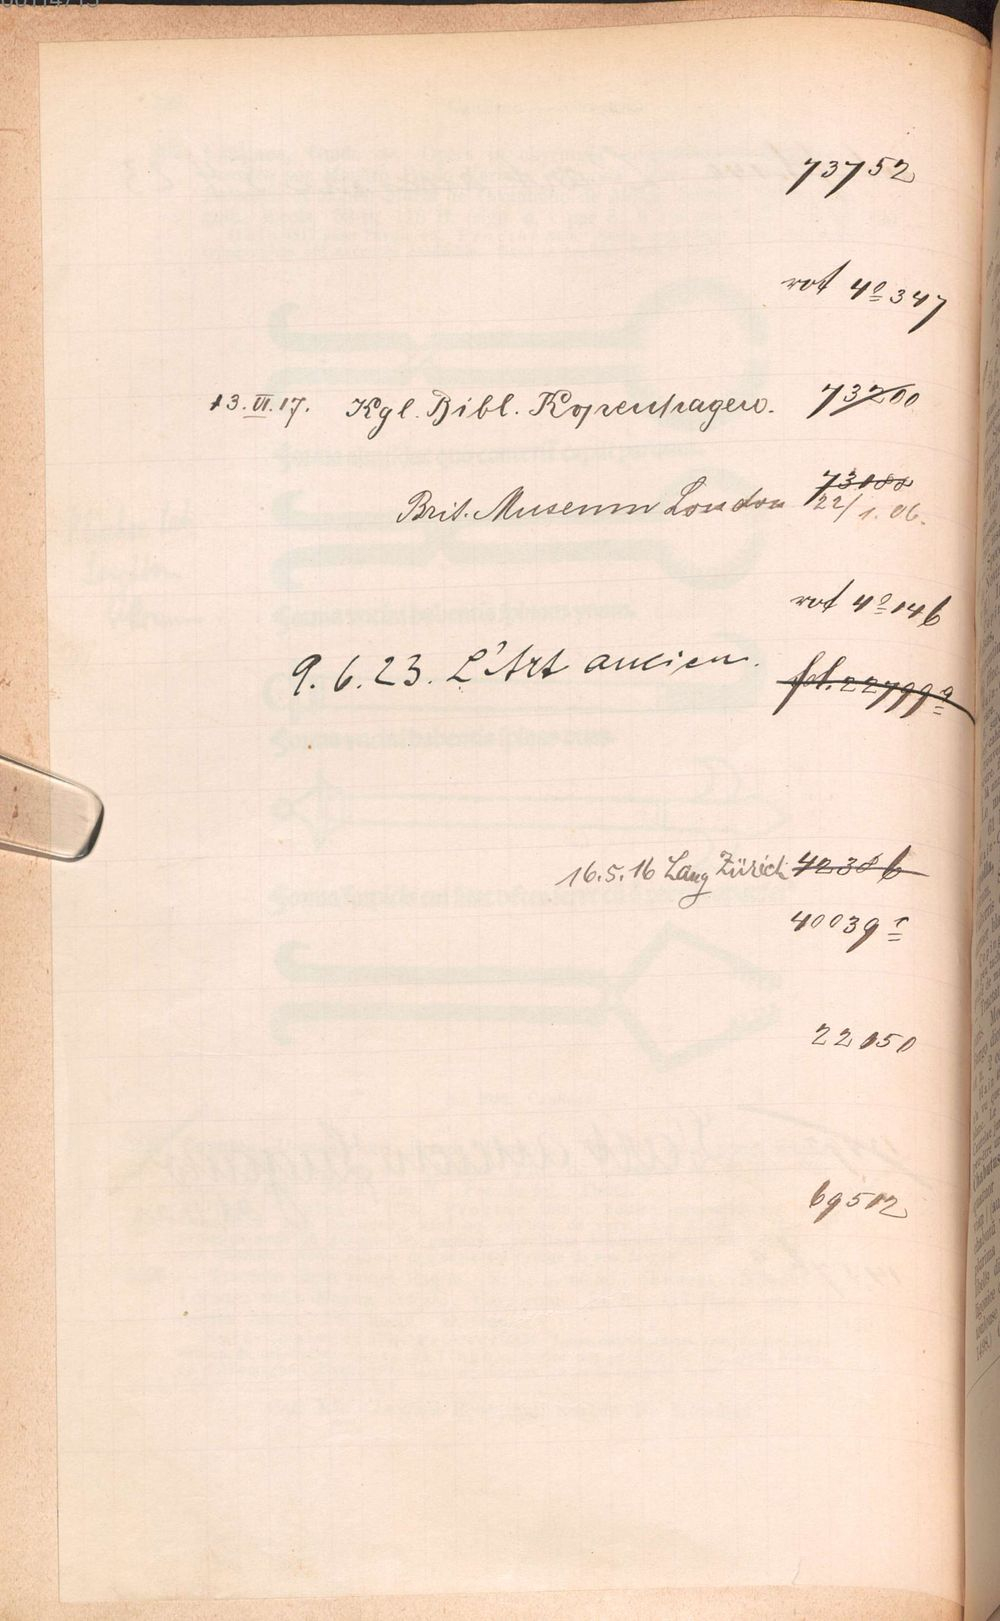 73752
rot 4º 347
13.VI.17. Kgl. Bibl. Kopenhagen. 73200
Brit. Museum London 73088
22/1.06.
rot 4º 146
9.6.23. L'Art ancien. fol. 22799 a
16.5.16 Lang Zürich 4238 b
40039 r
22150
69512